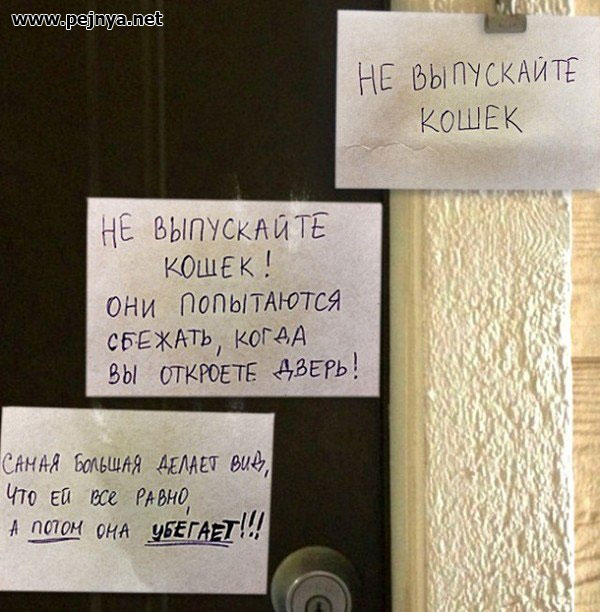 www.pejnya.net
НЕ ВЫПУСКАЙТЕ
КОШЕК
НЕ ВЫПУСКАЙТЕ
КОШЕК!
ОНИ ПОПЫТАЮТСЯ
СБЕЖАТЬ, КОГДА
ВЫ ОТКРОЕТЕ ДВЕРЬ!
САМАЯ БОЛЬШАЯ ДЕЛАЕТ ВИД,
ЧТО ЕЙ ВСЕ РАВНО,
А ПОТОМ ОНА УБЕГАЕТ!!!